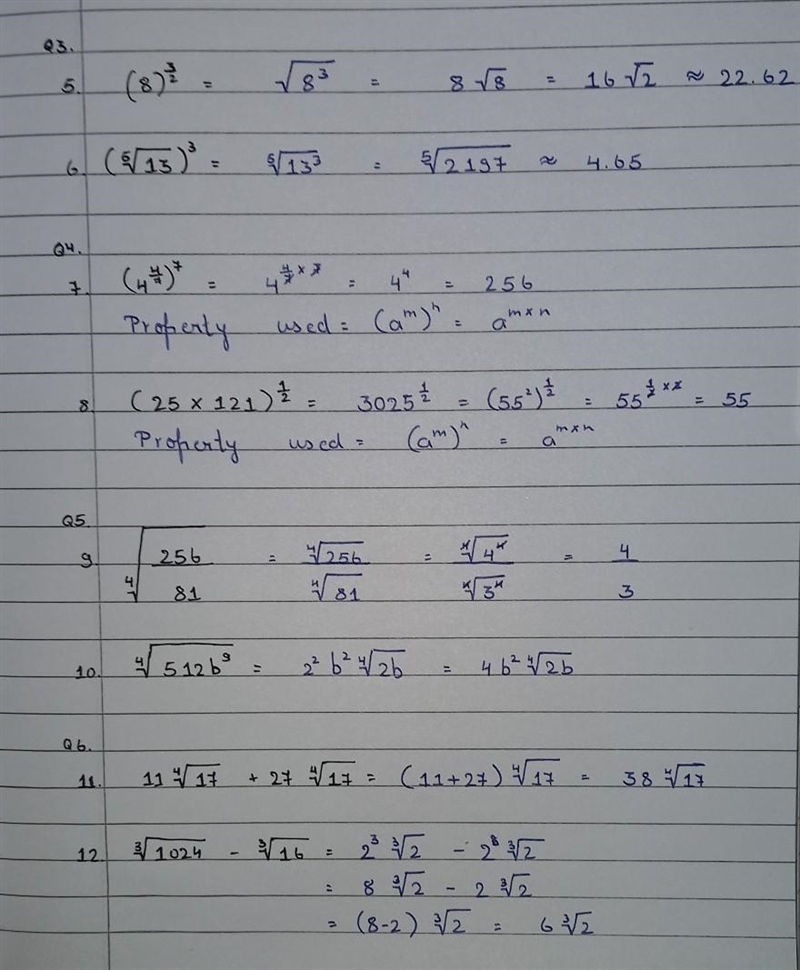 Q3.
5. (8)^{3/2} = √(8³) = 8√8 = 16√2 ≈ 22.62
6. (⁵√13)³ = ⁵√(13³) = ⁵√2197 ≈ 4.65
Q4.
7. (4^{4/7})^7 = 4^{4/7 × 7} = 4⁴ = 256
Property used = (a^m)^n = a^{m×n}
8. (25 × 121)^{1/2} = 3025^{1/2} = (55²)^{1/2} = 55^{1/2 × 2} = 55
Property used = (a^m)^n = a^{m×n}
Q5.
9. ⁴√(256/81) = ⁴√256/⁴√81 = ⁴√(4⁴)/⁴√(3⁴) = 4/3
10. ⁴√(512b⁹) = 2² b² ⁴√(2b) = 4b² ⁴√(2b)
Q6.
11. 11 ⁴√17 + 27 ⁴√17 = (11+27) ⁴√17 = 38 ⁴√17
12. ³√1024 - ³√16 = 2³ ³√2 - 2 ³√2
= 8 ³√2 - 2 ³√2
= (8-2) ³√2 = 6 ³√2